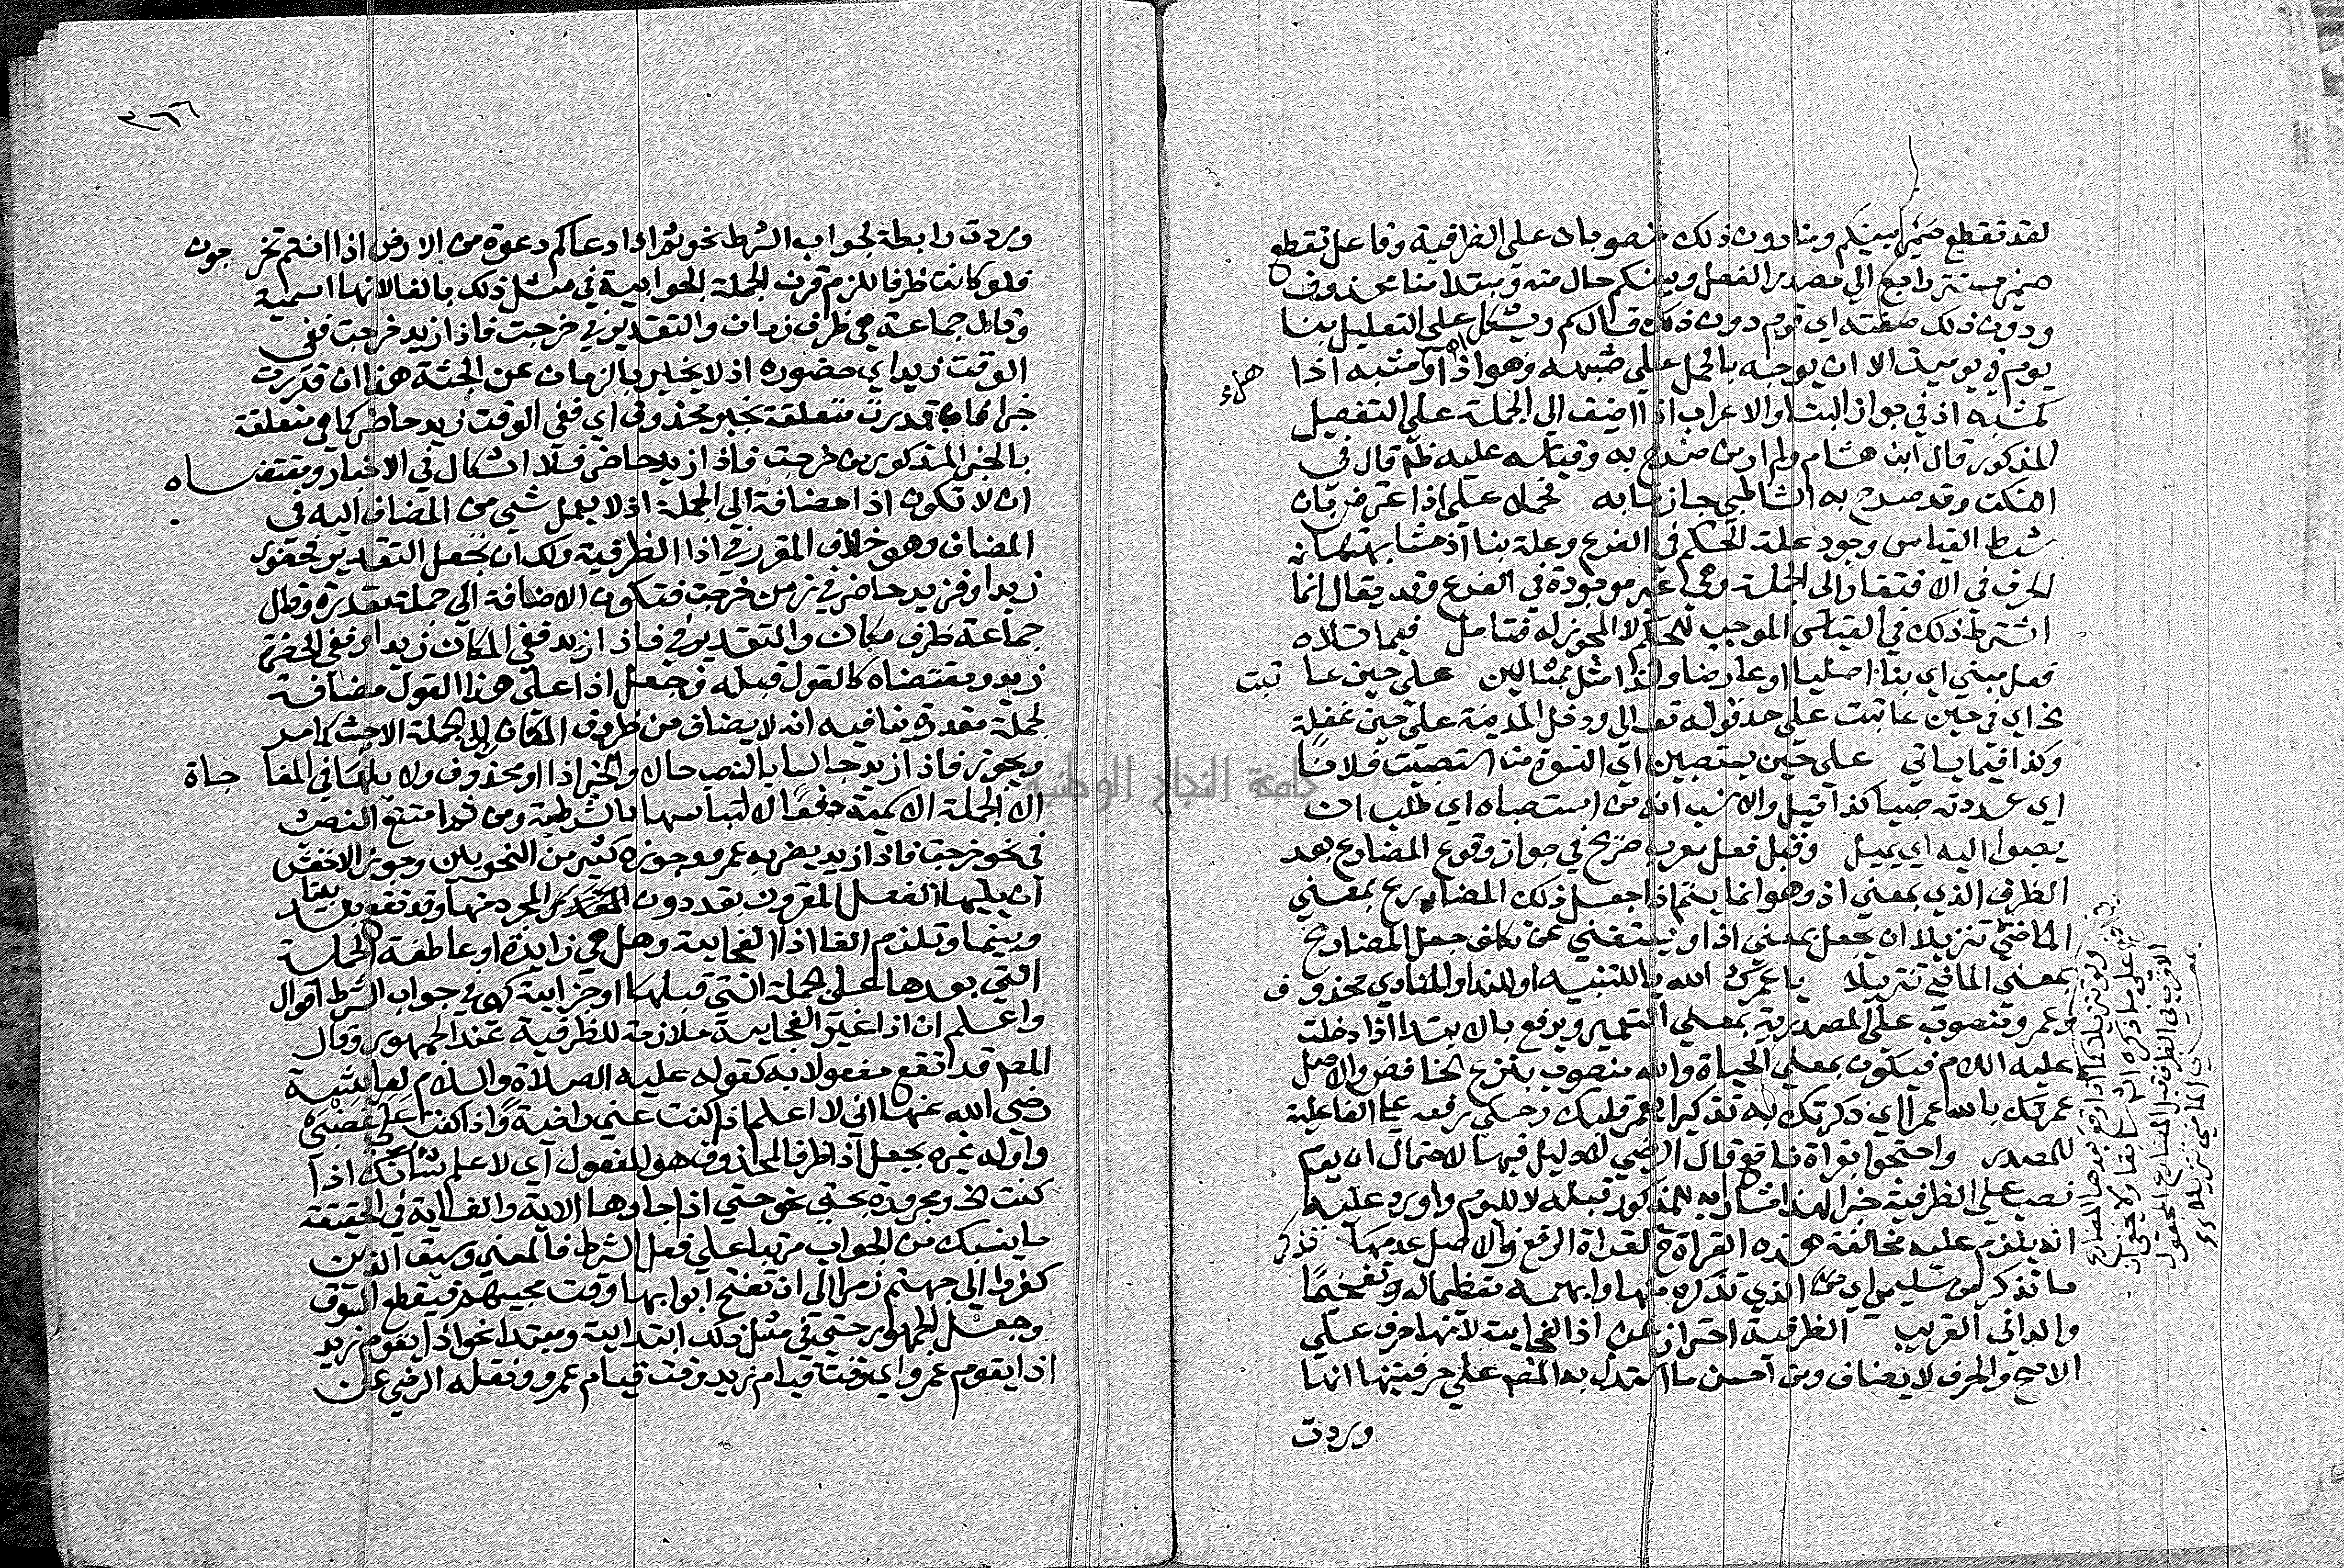 لقد تقطع ضمير بينكم ومنا دون ذلك منصوبان على الظرفية وفاعل تقطع
ضمير مستتر راجع الي مصدر الفعل وبينكم حال منه ومبتدا منا محذوف
ودون ذلك صفته اي قوم دون ذلك قال كم ويشكل على التعليل بنا
يوم في يوميذ الا ان يوجه بالحمل على شبهه وهو اذا او مشبه اذا
كمشبه اذ في جواز البنا والاعراب اذا اضيف الي الجملة على التفصيل
المذكور قال ابن هشام ولم ار من صرح به وقياسه عليه ظم قال في
النكت وقد صرح به الشاطبي جاز شابه فحمله على اذا اعترض بان
شرط القياس وجود علة الحكم في الفرع وعلة بنا اذ مشابهتها
للحرف في الافتقار الى الجملة وهي غير موجودة في الفرع وقد يقال انما
اشترط ذلك في القياس الموجب للحكم لا المجوز له فتامل فيما تلاه
فعل مبني اي بناء اصليا او عارضا ولذا مثل بمثالين على حين عا تبت
اي في حين عاتبت على حد قوله تعالي ودخل المدينة على حين غفلة
وكذا فيما ياتي على حين يستصبين اي النسوة من استصبيت فلانا
اي عددته صبيا كذا قيل والانسب انه من استصباه اي طلب ان
يصبوا اليه اي يميل وقبل فعل معرب صريح في جواز وقوع المضارع بعد
الظرف الذي بمعني اذ وهو انما يتم اذا جعل ذلك المضارع بمعني
الماضي تنزيلا ان يجعل بمعني اذا ويستغني عن تكلف جعل المضارع
بمعني الماضي تنزيلا يا عمرك الله يا للتنبيه او للندا والمنادي محذوف
وعمر منصوب على المصدرية بمعني التعمير ويرفع بالابتدا اذا دخلت
عليه اللام فيكون بمعني الحياة والله منصوب بنزع الخافض والاصل
عمرتك بالله عمرا اي ذكرتك به تذكيرا يعمر قلبك وحكي رفعه على الفاعلية
للمصدر واحتجوا بقراة نافع قال الرضي لا دليل فيها لاحتمال ان يوم
نصب علي الظرفية خبرا لهذا مشار به للمذكور قبله لا لليوم واورد عليه
انه يلزم عليه مخالفة هذه القراة لقراة الرفع والاصل عدمها تذكر
ما تذكر من سليمى اي الذي تذكره منها وابهمه تعظيما له وتفخيما
والداني القريب الظرفية احتراز عن اذا الفجايية لانها حرف على
الاصح والحرف لا يضاف ومن احسن ما استدل به المص على حرفيتها انها
وردت
وردت رابطة لجواب الشرط نحو ثم اذا دعاكم دعوة من الارض اذا انتم تخر جون
فلو كانت ظرفا للزم قرن الجملة الجوابية في مثل ذلك بالفا لانها اسمية
وقال جماعة هي ظرف زمان والتقدير في خرجت فاذا زيد خرجت ففي
الوقت زيد اي حضوره اذ لا يخبر بالزمان عن الجثة هذا ان قدرت
خبرا فان قدرت متعلقة بخبر محذوف اي ففي الوقت زيد حاضر كما هي متعلقة
بالخبر المذكور من خرجت فاذا زيد حاضر فلا اشكال في الاخبار ومقتضاه
ان لا تكون اذا مضافة الي الجملة اذ لا يعمل شي من المضاف اليه في
المضاف وهو خلاف المقرر في اذا الظرفية ولك ان تجعل التقدير فحضور
زيد او فزيد حاضر في زمن خرجت فتكون الاضافة الي جملة مقدرة وقال
جماعة ظرف مكان والتقدير في فاذا زيد ففي المكان زيد او ففي الحضرة
زيد ومقتضاه كالقول قبله وجعل اذا على هذا القول مضافة
لجملة مقدرة ينافيه انه لا يضاف من ظروف المكان الي الجملة الا حيث كما مر
ويجوز فاذا زيد جالسا بالنصب حالا والخبر اذا او محذوف ولا يليها في المفا جاة
الا الجملة الاسمية دفعا لالتباسها بالشرطية ومن ثم امتنع النصب
في نحو خرجت فاذا زيد يضربه عمرو وجوزه كثير من النحويين وجوز الاخفش
ان يليها الفعل المقرون بقد دون المجرد منها وقد تقع بعد بينا
وبينما وتلزم الفا اذا الفجايية وهل هي زايدة او عاطفة لجملة
التي بعدها على الجملة التي قبلها او جزاية كهي في جواب الشرط اقوال
واعلم ان اذا غير الفجايية ملازمة للظرفية عند الجمهور وقال
المص قد تقع مفعولا به كقوله عليه الصلاة والسلام لعايشة
رضي الله عنها اني لا اعلم اذا كنت عني راضية واذا كنت علي غضبى
واوله غيره بجعل اذا ظرفا لمحذوف هو المفعول اي لا علم شانك اذا
كنت الخ ومجرورة بحتي نحو حتي اذا جاوها الاية والغاية في الحقيقة
ما ينسبك من الجواب مرتبا علي فعل الشرط فالمعني وسيق الذين
كفروا الي جهنم زمرا الي ان تفتح ابوابها وقت مجييهم فينقطع السوق
وجعل الجمهور حتي في مثل ذلك ابتدايية ومبتدا نحو اذا يقوم زيد
اذا يقوم عمرو اي وقت قيام زيد وقت قيام عمرو ونقله الرضي عن
جامعة النجاح الوطنية